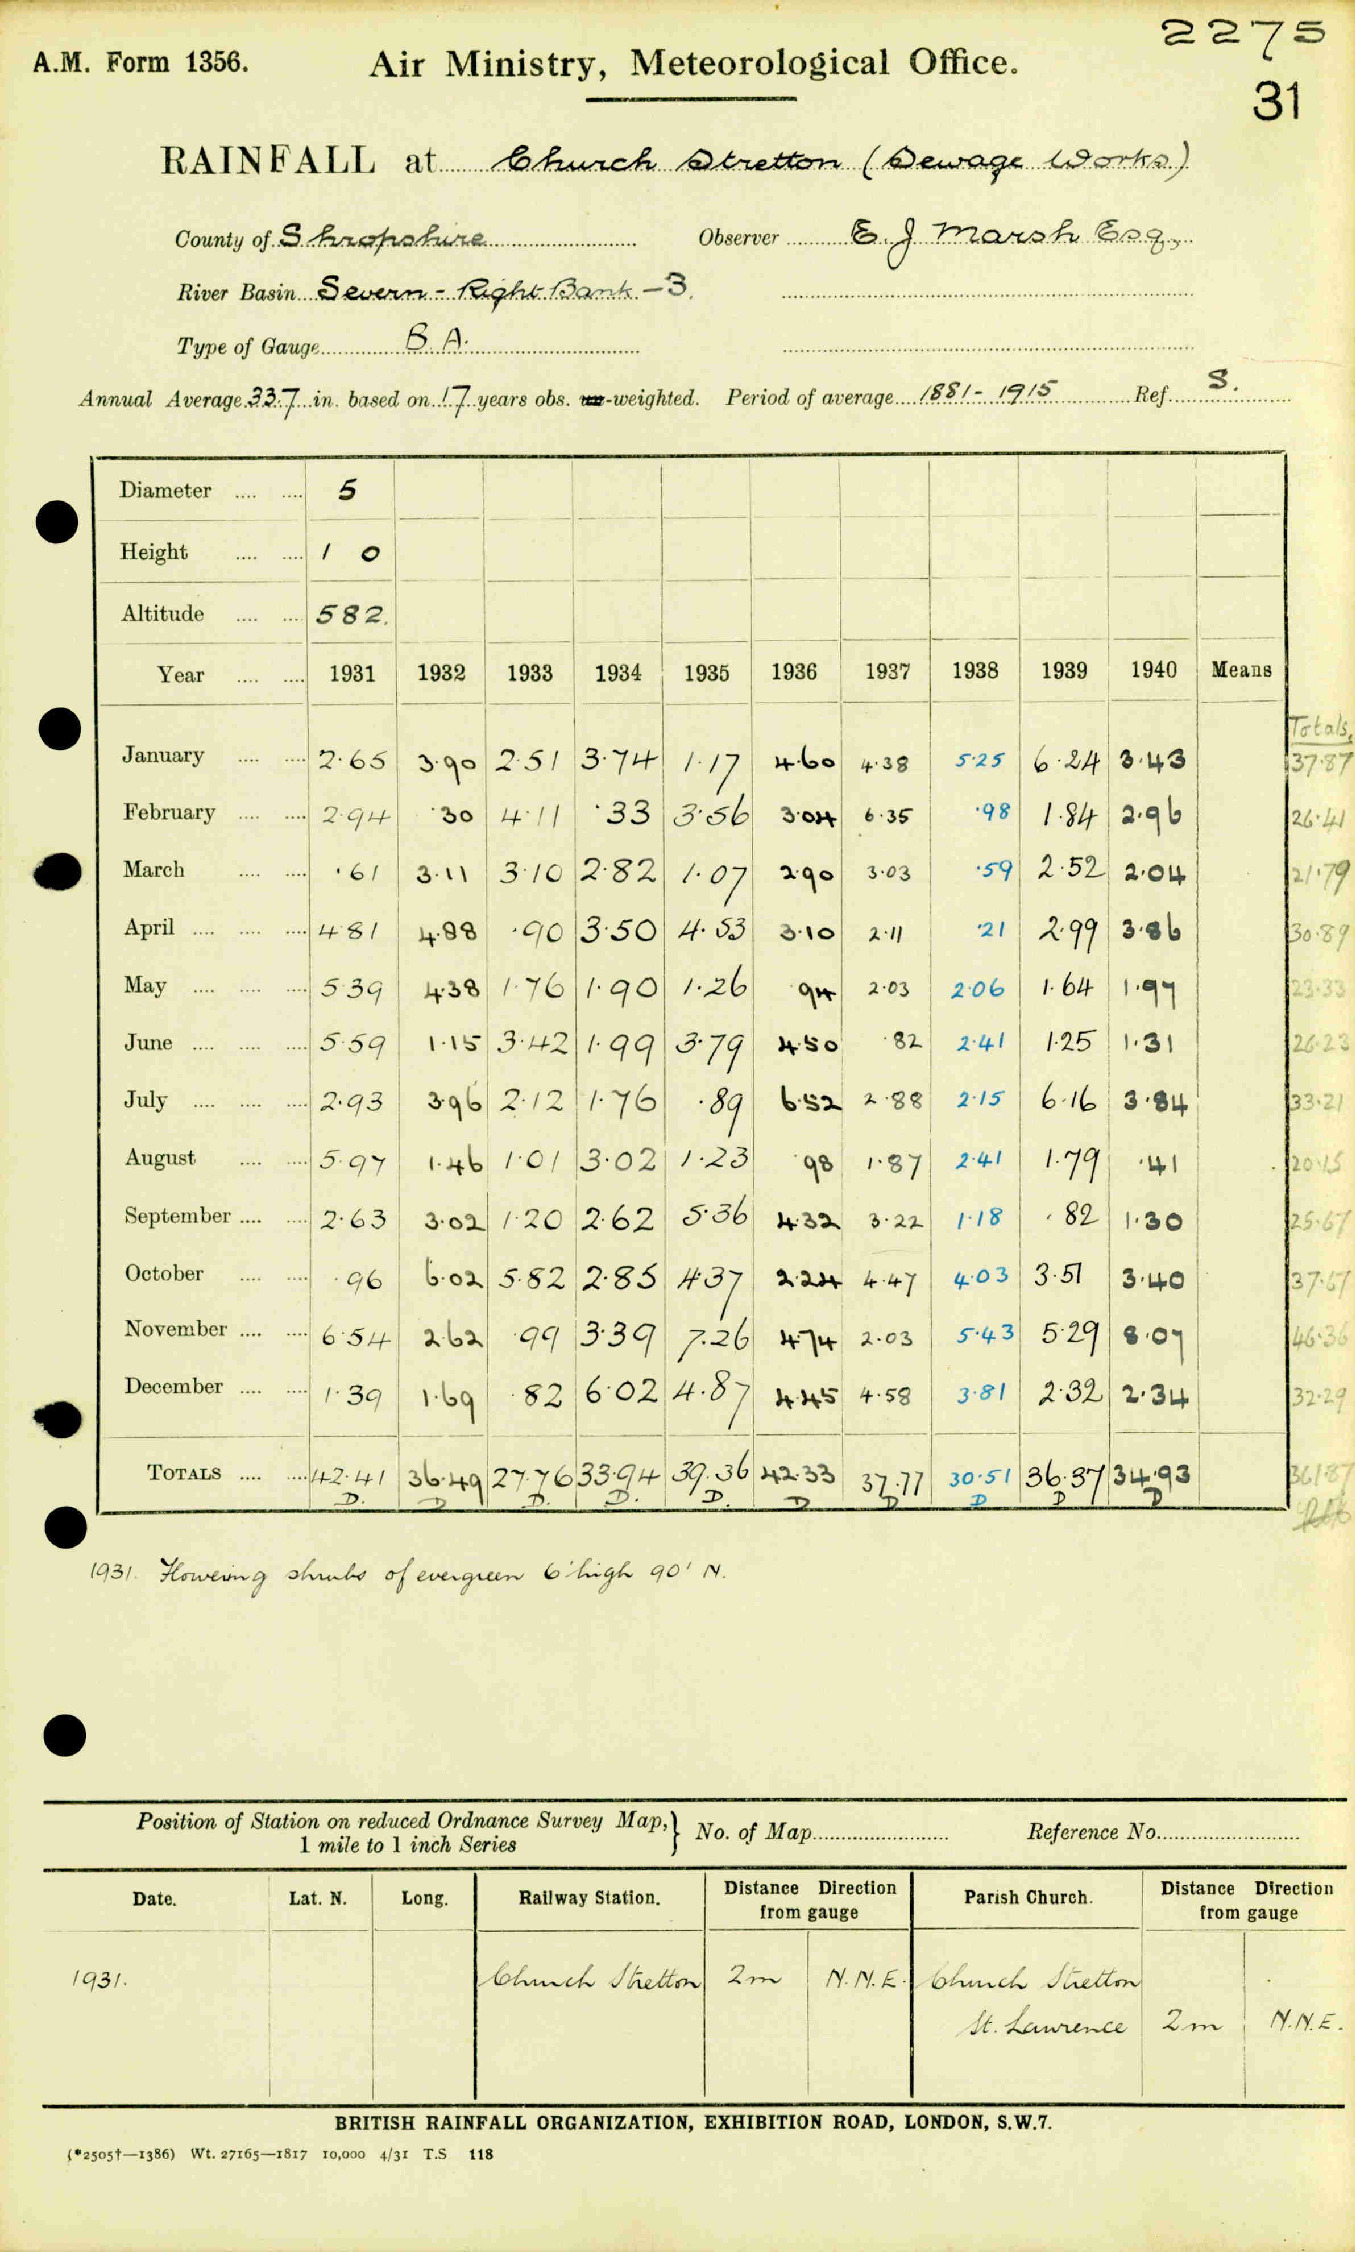 2275
A.M. Form 1356. Air Ministry, Meteorological Office.
31
RAINFALL at Church Stretton (Sewage Works)
County of Shropshire Observer E. J Marsh Esq.,
River Basin Severn - Right Bank - 3.
Type of Gauge B. A.
Annual Average 33.7 in. based on 17 years obs. -weighted. Period of average 1881 - 1915 Ref. S.
Diameter .... .... 5
Height .... .... 1 0
Altitude .... .... 582.
Year .... .... 1931 1932 1933 1934 1935 1936 1937 1938 1939 1940 Means
Totals.
January .... .... 2.65 3.90 2.51 3.74 1.17 4.60 4.38 5.25 6.24 3.43 37.87
February .... .... 2.94 .30 4.11 .33 3.56 3.04 6.35 .98 1.84 2.96 26.41
March .... .... .61 3.11 3.10 2.82 1.07 2.90 3.03 .59 2.52 2.04 21.79
April .... .... .... 4.81 4.88 .90 3.50 4.53 3.10 2.11 .21 2.99 3.86 30.89
May .... .... .... 5.39 4.38 1.76 1.90 1.26 .94 2.03 2.06 1.64 1.97 23.33
June .... .... .... 5.59 1.15 3.42 1.99 3.79 4.50 .82 2.41 1.25 1.31 26.23
July .... .... .... 2.93 3.96 2.12 1.76 .89 6.52 2.88 2.15 6.16 3.84 33.21
August .... .... 5.97 1.46 1.01 3.02 1.23 .98 1.87 2.41 1.79 .41 20.15
September .... .... 2.63 3.02 1.20 2.62 5.36 4.32 3.22 1.18 .82 1.30 25.67
October .... .... .96 6.02 5.82 2.85 4.37 2.24 4.47 4.03 3.51 3.40 37.67
November .... .... 6.54 2.62 .99 3.39 7.26 4.74 2.03 5.43 5.29 8.07 46.36
December .... .... 1.39 1.69 .82 6.02 4.87 4.45 4.58 3.81 2.32 2.34 32.29
TOTALS .... .... 42.41 36.49 27.76 33.94 39.36 42.33 37.77 30.51 36.37 34.93 361.87
D. D D. D. D. D D D D D
1931. Flowering shrubs of evergreen 6' high 90' N.
Position of Station on reduced Ordnance Survey Map, } No. of Map Reference No.
1 mile to 1 inch Series
Date. Lat. N. Long. Railway Station. Distance Direction from gauge Parish Church. Distance Direction from gauge
1931. Church Stretton 2m N.N.E. Church Stretton
St. Lawrence 2m N.N.E.
BRITISH RAINFALL ORGANIZATION, EXHIBITION ROAD, LONDON, S.W.7.
(*2505†—1386) Wt. 27165—1817 10,000 4/31 T.S 118